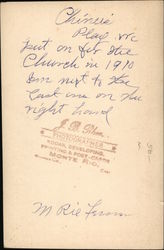 Chinese
Play we
put on for the
Church in 1910
Im next to the
last one on the
right hand
PHOTOGRAPHER
KODAK DEVELOPING,
PRINTING & POST-CARDS
MONTE RIO,
M Rie